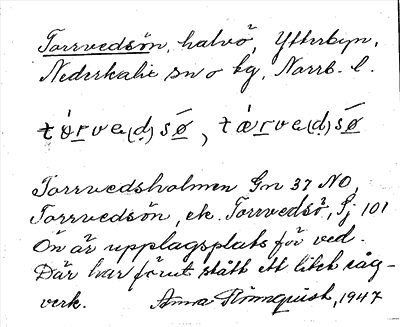 Torrvedsön, halvö, Ytterbyn,
Nederkalix sn o kg, Norrb. l.
tòrve(ḍ)sø̄, tærve(ḍ)sø̄
Torrvedsholmen Gn 37 NO,
Torrvedsön, ek. Torrvedsö, Sj 101
Ön är upplagsplats för ved.
Där har förut stått ett litet såg-
verk. Anna Rönnquist, 1947